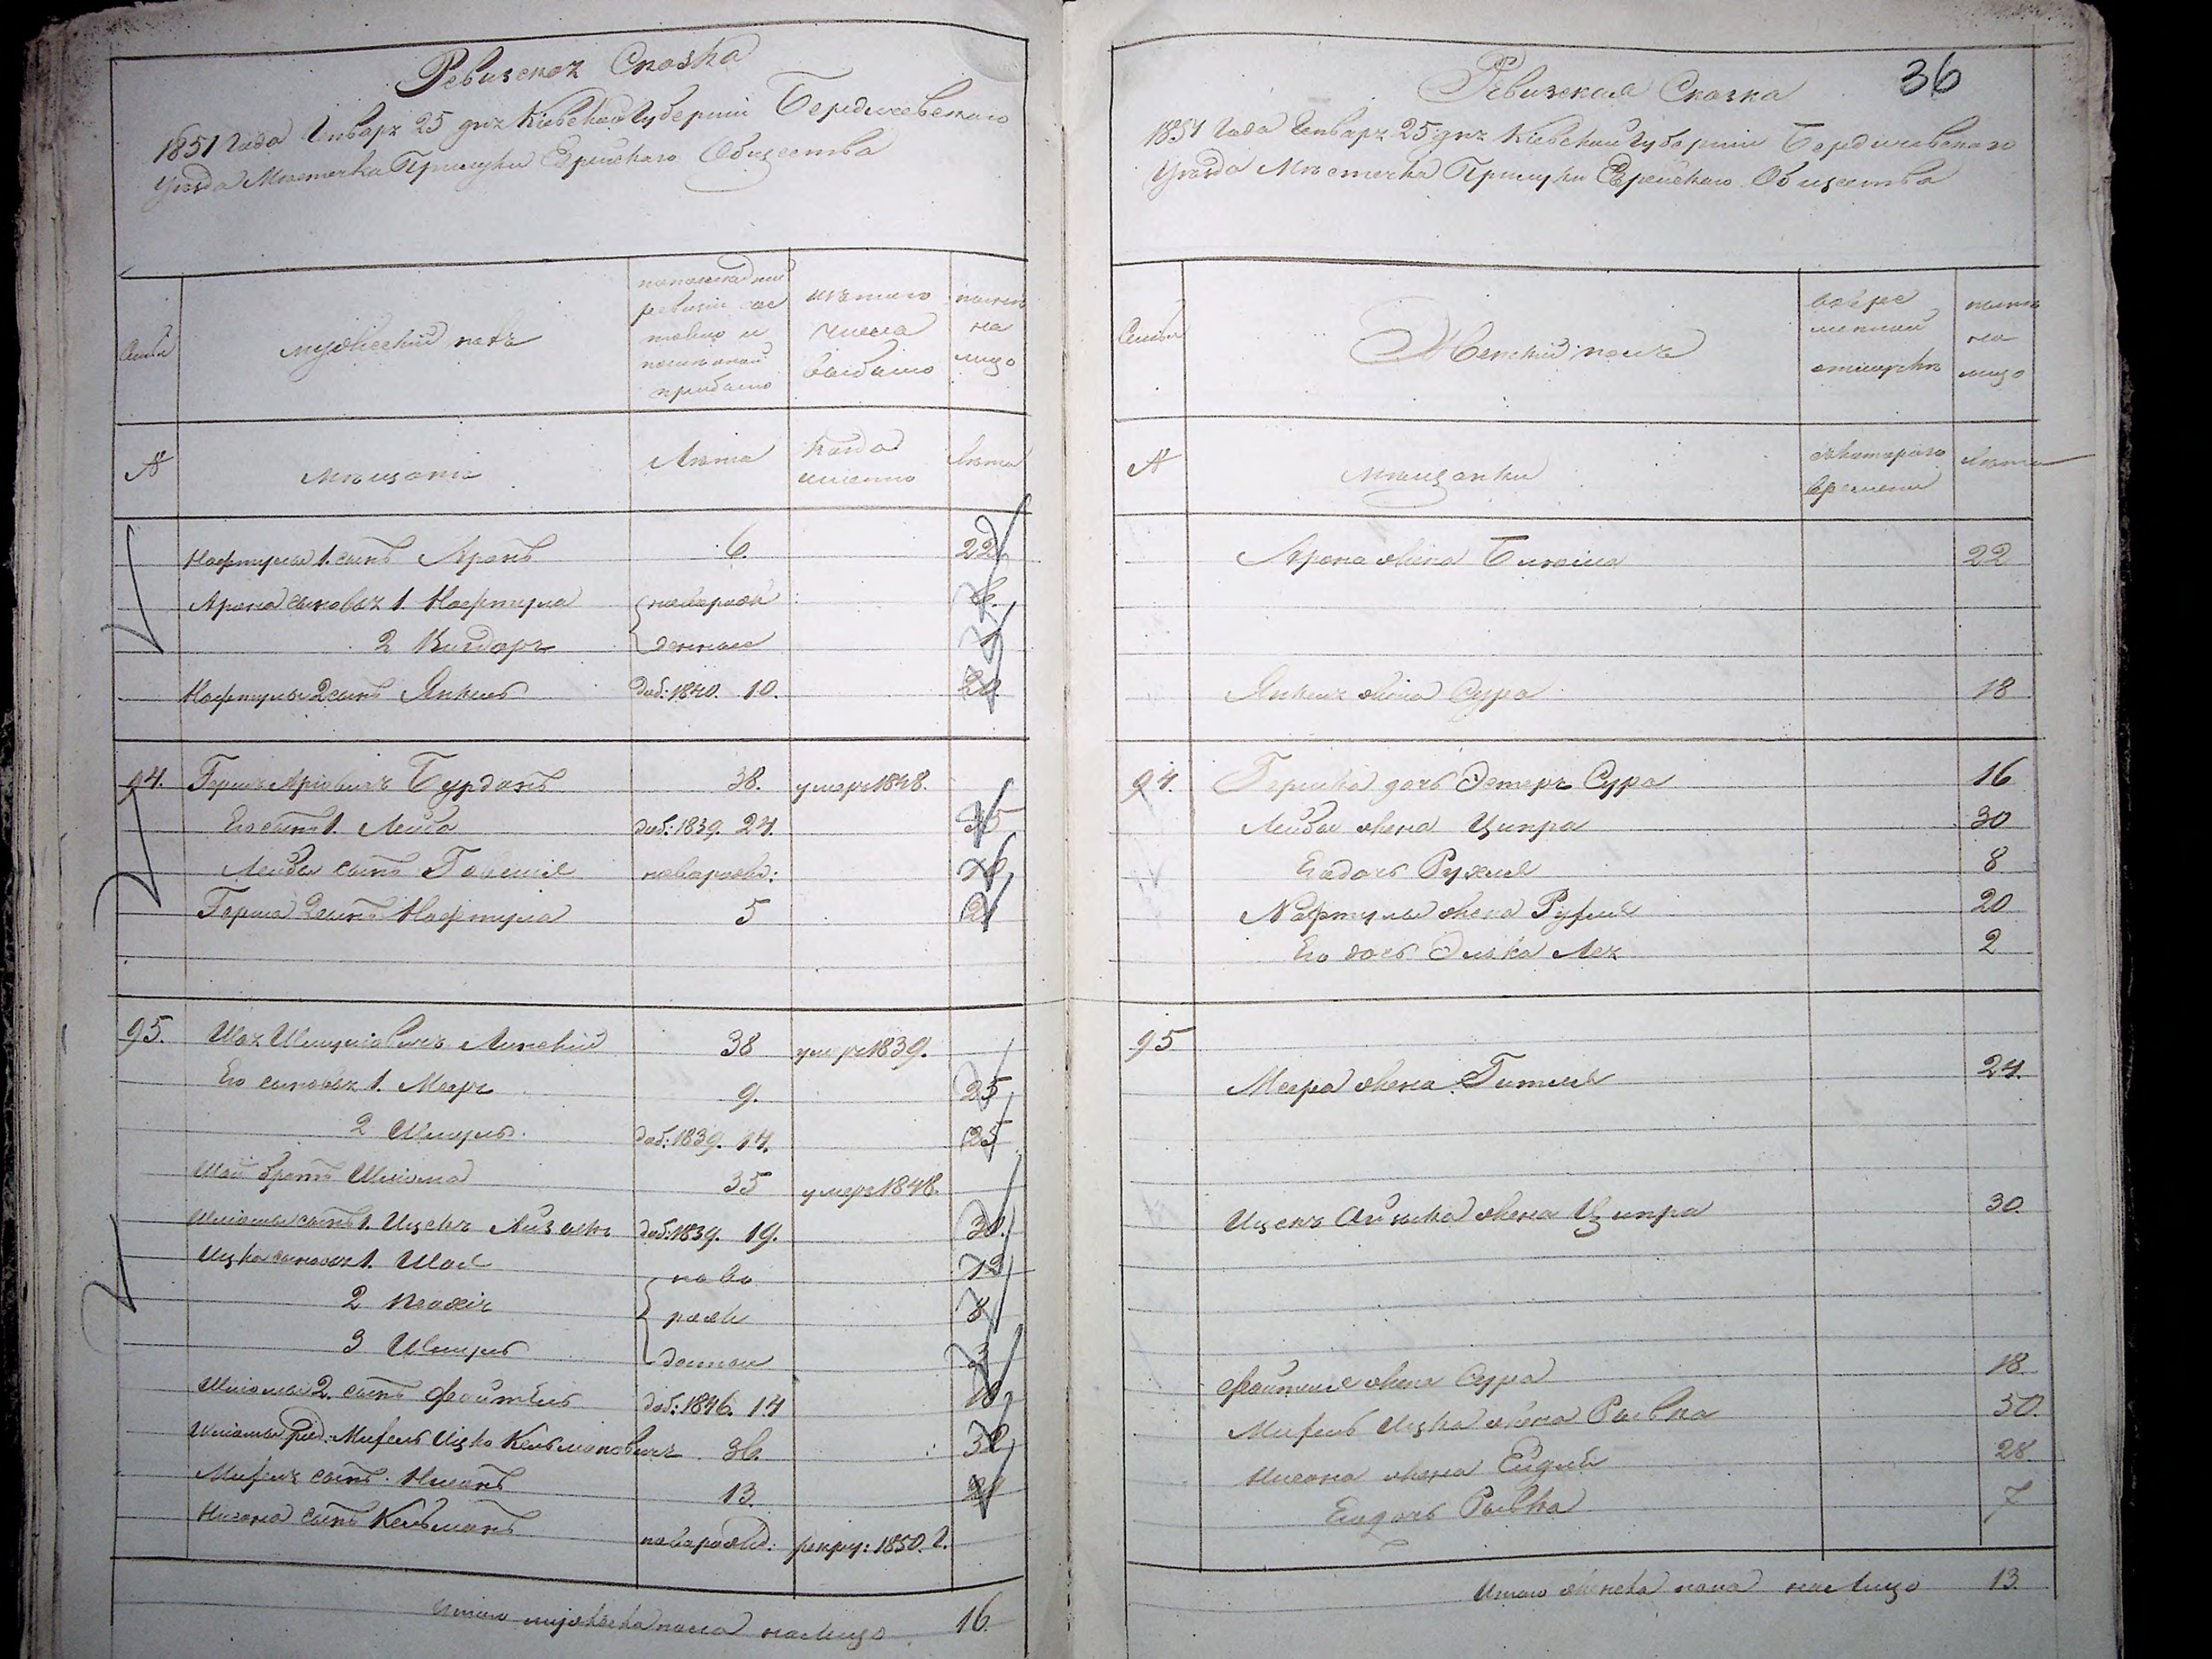 Ревизская Сказка
1851 Года Генваря 25 дня Кіевской Губерніи Бердичевскаго
Уѣзда Мѣстечка Прилуки Еврейскаго Общества
Семьи
мужескій полъ
по последней ревизіи состояло и после оной прибыло
изъ того числа выбыло
ныне на лицо
№
мѣщане
Лѣта
Когда именно
Лѣта
Нафтулы 1. сынъ Аронъ 6. 22
Арона сыновья 1. Нафтула новорож
2 денные
Нафтулы 2 сынъ Янкель доб: 1840. 10. 20
94. Гершъ Бурданъ 38. умеръ 1848.
Его сынъ 1. Лейба доб: 1839. 24. 35
Лейбы сынъ новорожд:
Герша 2 сынъ Нафтула 5 21
95. Шая Шмулiовичъ Липскій 38 умеръ 1839.
Его сыновья 1. Мееръ 9. 25
2 Шмуль доб: 1839. 14. 25
Шаи братъ Шліома 35 умеръ 1848.
Шліомы сынъ 1. Ицекъ Айзикъ доб: 1839. 19. 30.
Ицка сыновья 1. Шая ново 12
2 рож 8
3 Шмуль 3
Шліомы 2. сынъ Файтель доб: 1846. 14 18
Шліомы Ицко Кельмановичъ 36.
сынъ 13
сынъ Кельманъ новорожд: рекру: 1850. г.
Итого мужеска пола на лицо 16.
36
Ревизская Сказка
1851 Года Генваря 25 дня Кіевской Губерніи Бердичевскаго
Уѣзда Мѣстечка Прилуки Еврейскаго Общества
Семьи
Женскій полъ
во временной отлучкѣ
ныне на лицо
№
мѣщанки
съ котораго времени
Лѣта
Арона жена 22
Янкеля жена Сура 18
94. Гершка дочь Эстеръ Сура 16
Лейбы жена Ципра 30
Ея дочь Рухля 8
Нафтулы жена 20
Его дочь Элька Лея 2
95
Меера жена Гитля 24.
Ицекъ Айзика жена Ципра 30.
Файтеля жена Сура 18
Ицка жена Рывка 50.
жена 28
Ея дочь Рывка 7
Итого женска пола на лицо 13.